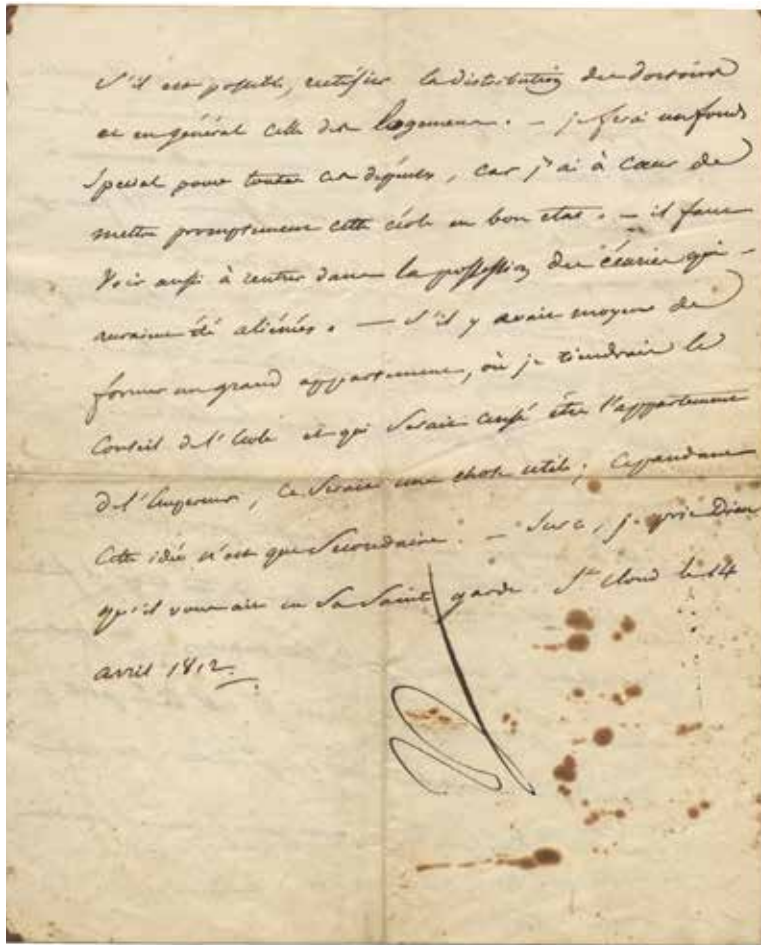 S'il est possible, rectifier la distribution des dortoirs
et en général celle des logemens. — je ferai un fonds
spécial pour toutes ces dépenses, car j'ai à cœur de
mettre promptement cette école en bon état. — il faut
voir aussi à rentrer dans la possession des écuries qui
auraient été aliénées. — S'il y avait moyen de
former un grand appartement, où je tiendrais le
Conseil de l'École et qui serait censé être l'appartement
de l'Empereur, ce serait une chose utile; cependant
cette idée n'est que secondaire. — Sur ce, je prie Dieu
qu'il vous ait en sa sainte garde. St Cloud le 14
avril 1812.